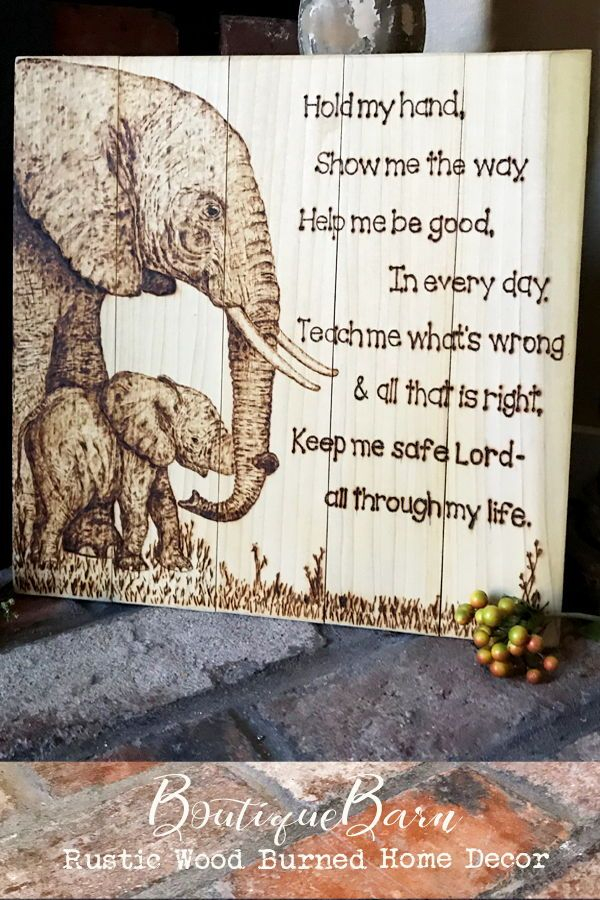 Hold my hand,
Show me the way.
Help me be good,
In every day.
Teach me what's wrong
& all that is right,
Keep me safe Lord-
all through my life.
BoutiqueBarn
Rustic Wood Burned Home Decor